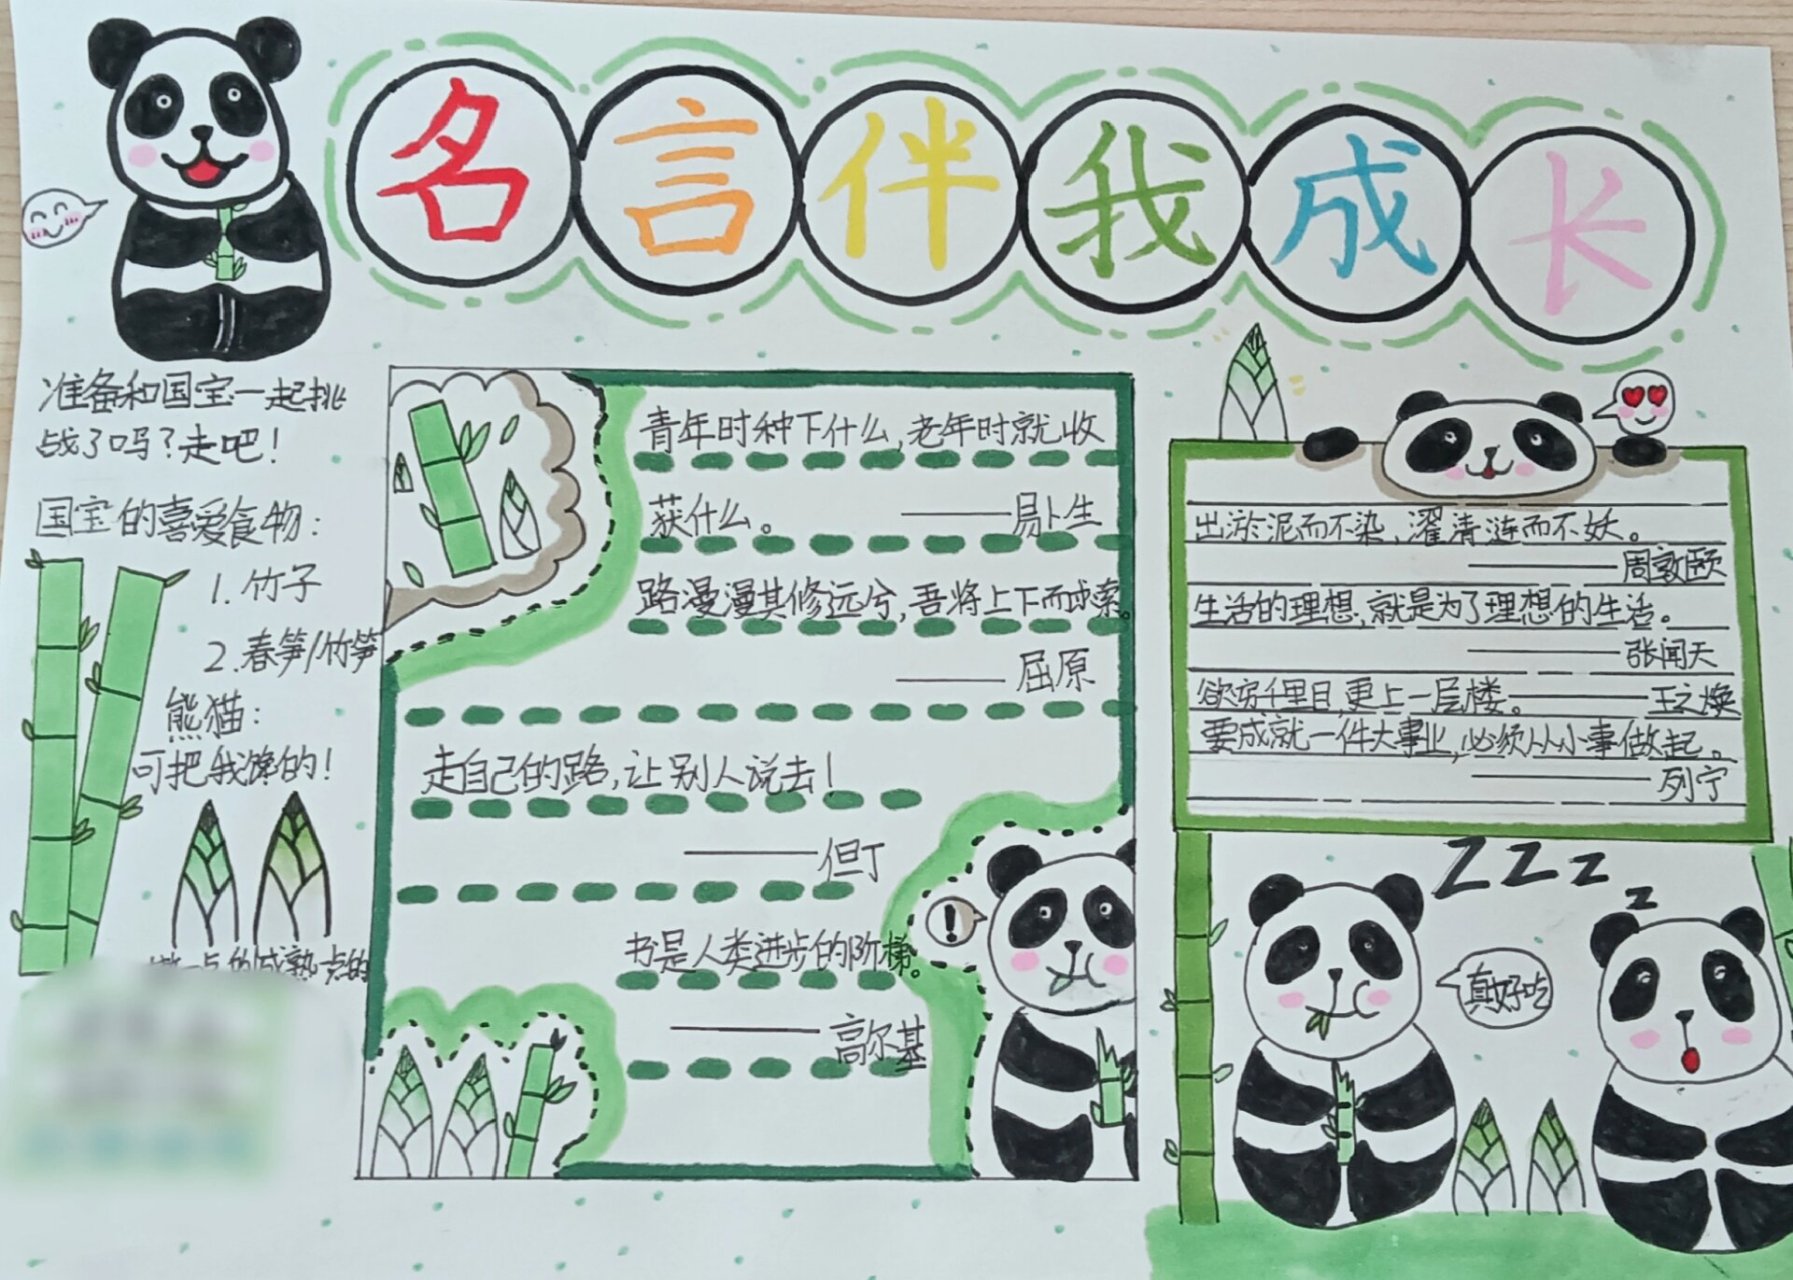 名言伴我成长
准备和国宝一起挑
战了吗?走吧!
国宝的喜爱食物:
1.竹子
2.春笋/竹笋
熊猫:
可把我馋的!
一点的成熟一点的
青年时种下什么,老年时就收
获什么。 ——易卜生
路漫漫其修远兮,吾将上下而求索。
——屈原
走自己的路,让别人说去!
——但丁
书是人类进步的阶梯。
——高尔基
出淤泥而不染,濯清涟而不妖。
——周敦颐
生活的理想,就是为了理想的生活。
——张闻天
欲穷千里目,更上一层楼。——王之焕
要成就一件大事业,必须从小事做起。
——列宁
ZZZz
真好吃